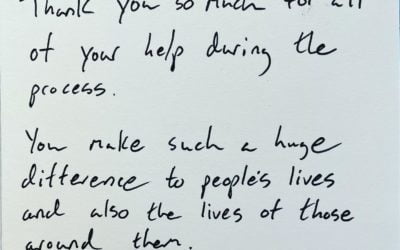 Thank you so much for all
of your help during the
process.
You make such a huge
difference to people's lives
and also the lives of those
around them.